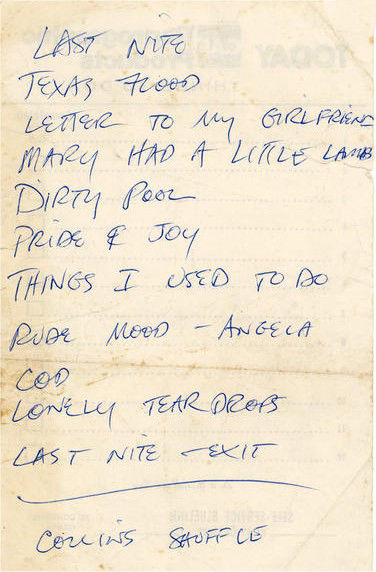 LAST NITE
TEXAS FLOOD
LETTER TO MY GIRLFRIEND
MARY HAD A LITTLE LAMB
DIRTY POOL
PRIDE & JOY
THINGS I USED TO DO
RUDE MOOD - ANGELA
COD
LONELY TEARDROPS
LAST NITE - EXIT
COLLINS SHUFFLE